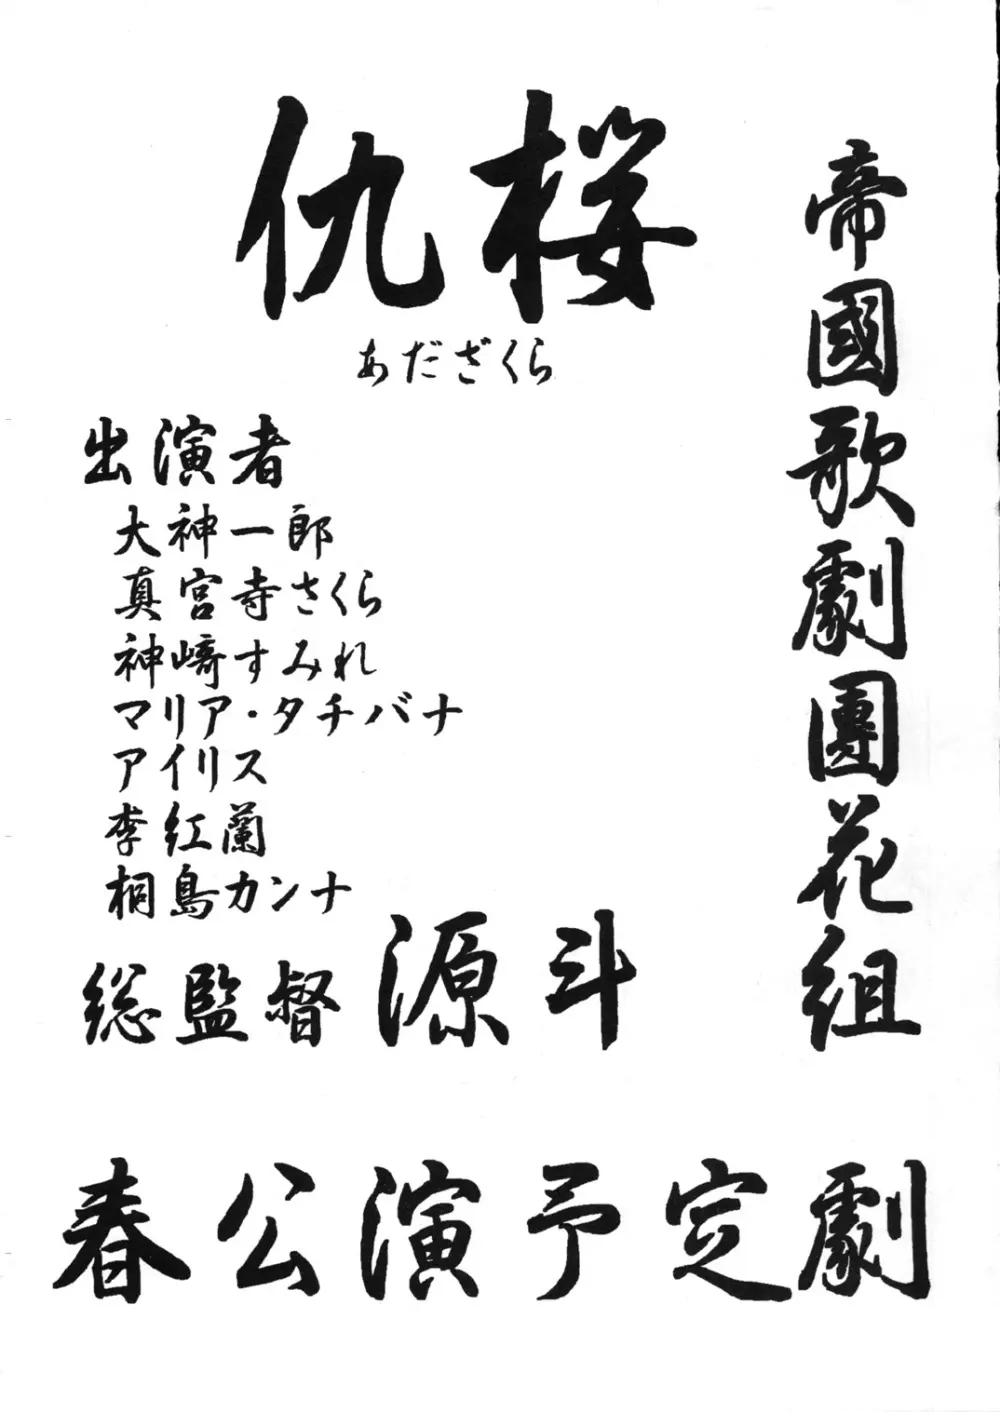 帝國歌劇團花組
仇桜
あだざくら
出演者
大神一郎
真宮寺さくら
神崎すみれ
マリア・タチバナ
アイリス
李紅蘭
桐島カンナ
総監督 源斗
春公演予定劇